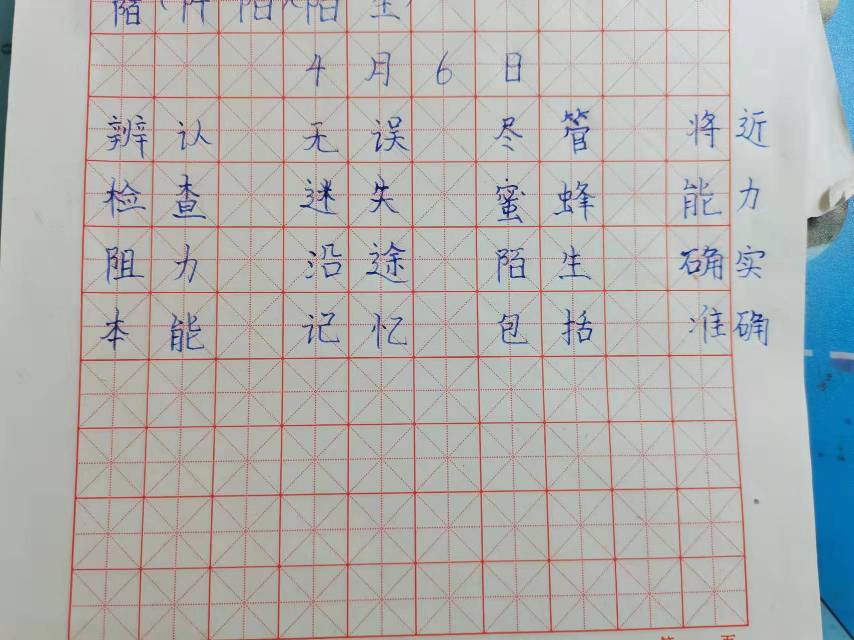 陌(阡陌)(陌生)
4月6日
辨认 无误 尽管 将近
检查 迷失 蜜蜂 能力
阻力 沿途 陌生 确实
本能 记忆 包括 准确